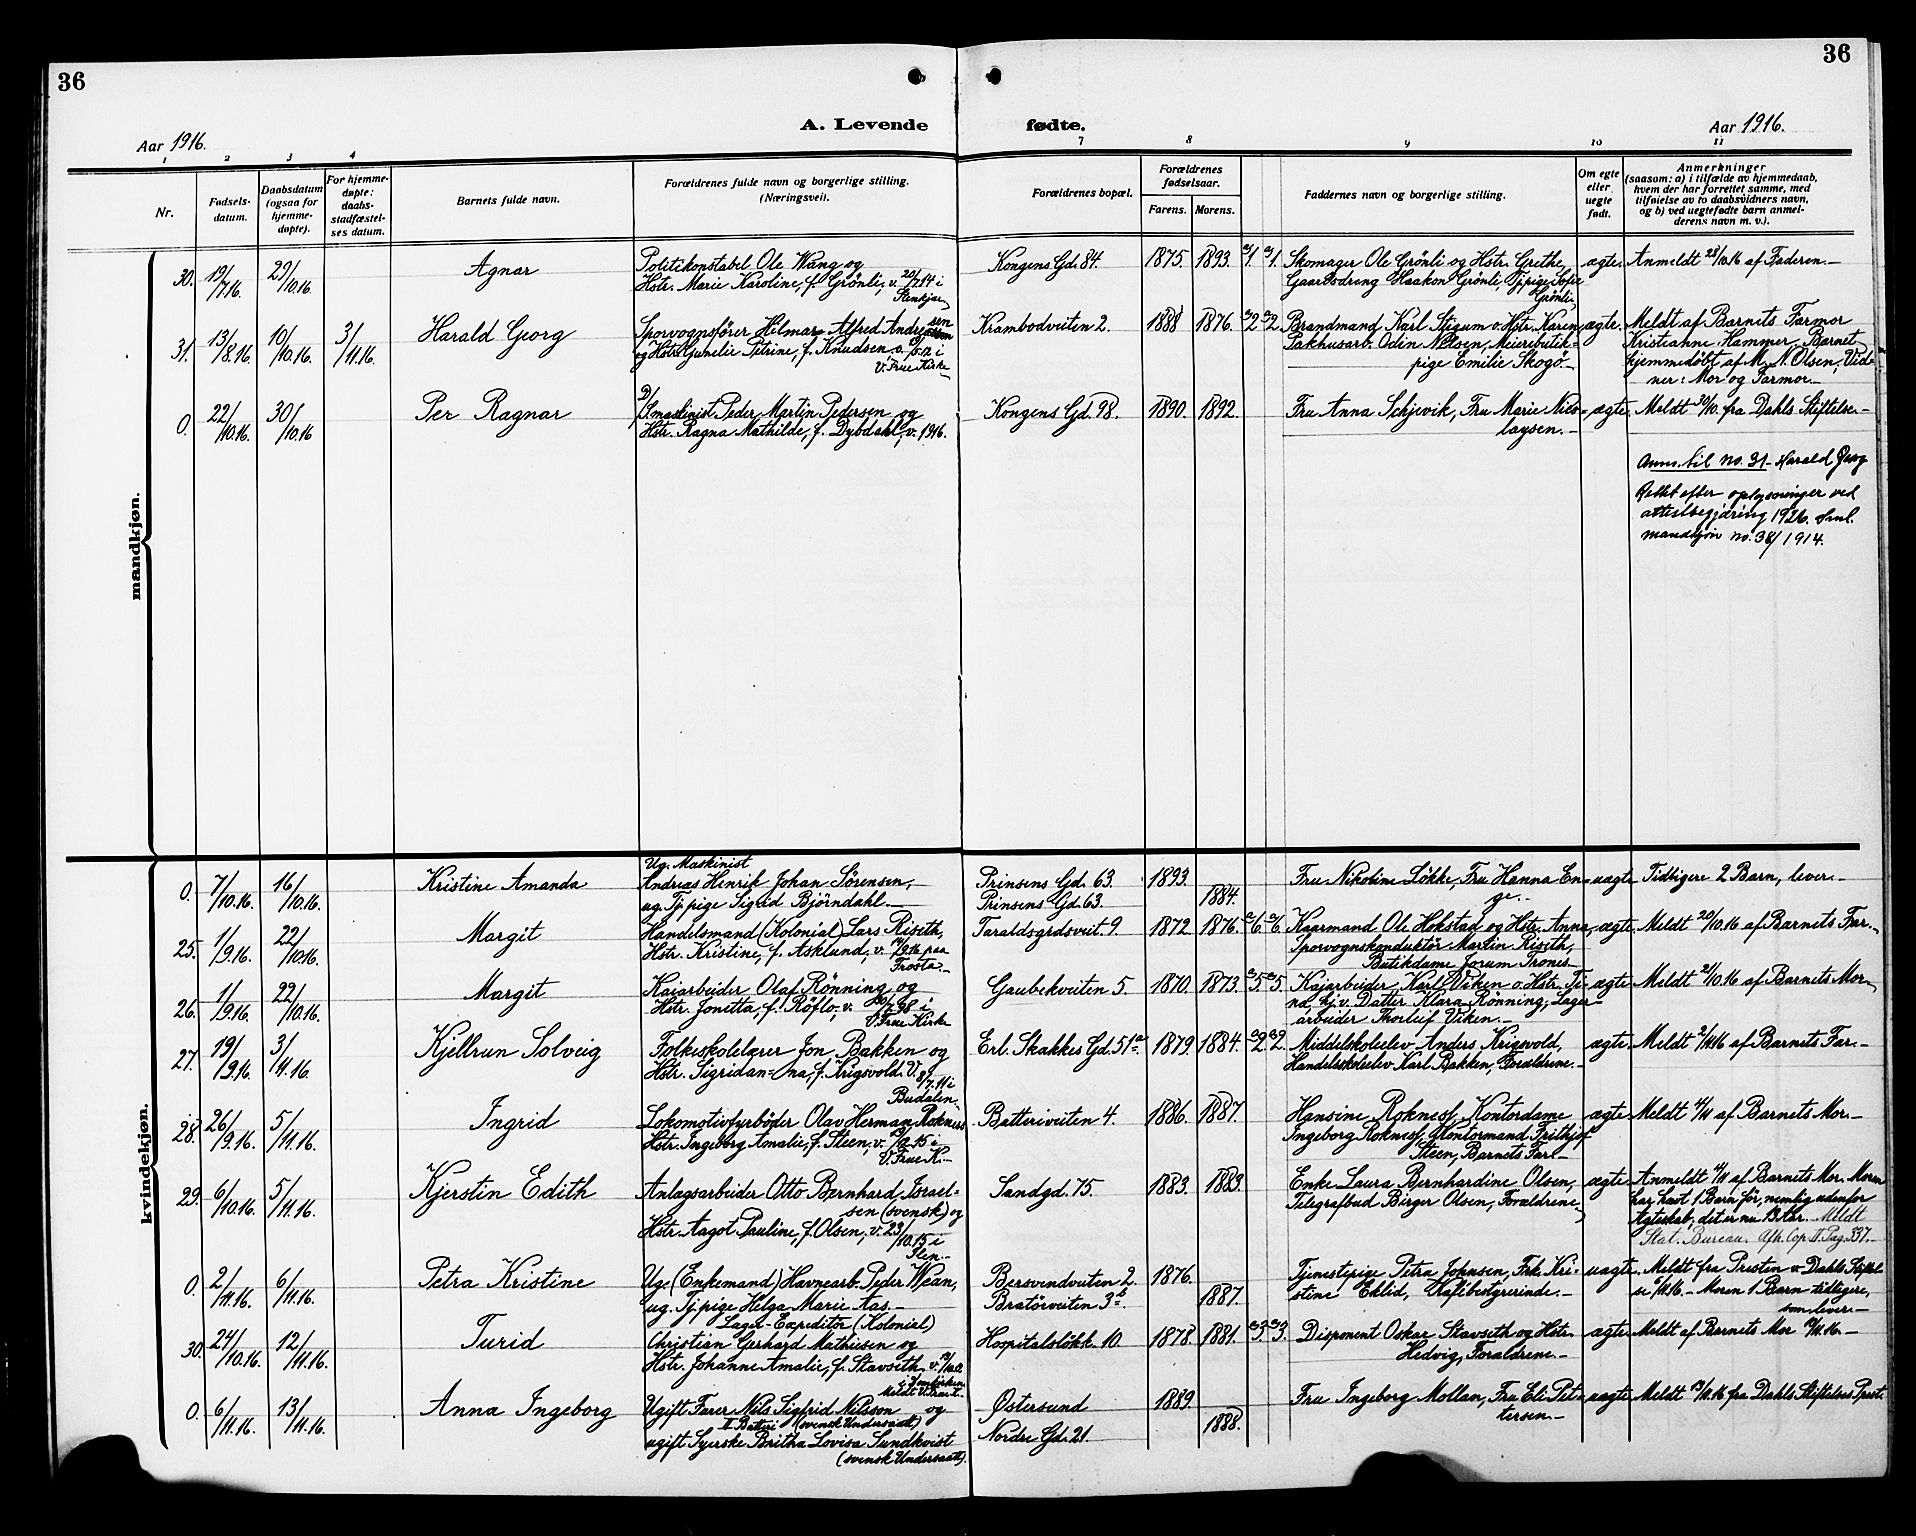 36
36
A. Levende fødte.
Aar 1916.
Aar 1916.
1 2 3 4 7 8 9 10 11
Nr.
Fødsels-
datum.
Daabsdatum
(ogsaa for
hjemme-
døpte).
For hjemme-
døpte:
daabs-
stadfæstel-
ses datum.
Barnets fulde navn.
Forældrenes fulde navn og borgerlige stilling.
(Næringsvei).
Forældrenes bopæl.
Forældrenes
fødselsaar.
Farens. Morens.
Faddernes navn og borgerlige stilling.
Om egte
eller
uegte
født.
Anmerkninger
(saasom: a) i tilfælde av hjemmedaab,
hvem der har forrettet samme, med
tilføielse av to daabsvidners navn,
og b) ved uegtefødte barn anmel-
derens navn m. v.).
mandkjøn.
30. 19/7.16. 29/10.16. Agnar
Politikonstabel Ole Wang og
Hstr. Marie Karoline, f. Grönli, v. 20/7.14 i
Stenkjær
Kongens Gd. 84. 1875. 1893.
Skomager Ole Grönli og Hstr. Grethe,
Gaardsdreng Haakon Grönli, Tj.pige Sofie
Grönli
ægte. Anmeldt 28/10.16 af Faderen.
31. 13/8.16. 10/10.16. 3/11.16. Harald Georg
Sporvognsförer Hilmar Alfred Andresen
og Hstr. Gunelie Petrine, f. Knudsen v.
V. Frue Kirke
Krambodveiten 2. 1888 1876.
Brandmand Karl Stigum o. Hstr. Karen,
Pakhusarb. Odin Nelsen, Meieributik-
pige Emilie Skogö.
ægte. Meldt af Barnets Farmor
Kristianne Hammer, Barnet
hjemmedöbt af M. N. Olsen, Vid-
ner: Mor og Farmor.
0. 22/10.16. 30/10.16 Per Ragnar
Peder Martin Pedersen og
Hstr. Ragna Mathilde, f. Dybdahl, v. 1916.
Kongens Gd. 98. 1890. 1892.
Fru Anna Schjevik, Fru Marie Nico-
laysen.
ægte. Meldt 30/10. fra Dahls Stiftelse.
Anm. til no. 31 - Harald Georg
Rettet efter oplysninger ved
attestbegjæring 1926. Sml.
mandkjøn no. 38/1914.
kvindekjøn.
0. 7/10.16. 16/10.16. Kristine Amanda
Ug. Maskinist
Andreas Henrik Johan Sörensen,
ug. Tj.pige Sigrid Björndahl.
Prinsens Gd. 63. 1893.
Prinsens Gd. 63. 1884.
Fru Nikoline Lökke, Fru Hanna En-
ge.
uægte Tidligere 2 Barn, lever.
25. 1/9.16. 22/10.16. Margit
Handelsmand (Kolonial) Lars Riseth,
Hstr. Kristine, f. Asklund, v. paa
Frosta.
Taraldsgrdsveit 9. 1872 1876.
Kaarmand Ole Hokstad og Hstr. Anna,
Sporvognskonduktör Martin Riseth,
Butikdame Jorum Trones
ægte Meldt 20/10.16 af Barnets Far.
26. 1/9.16. 22/10.16. Margit
Kaiarbeider Olaf Rönning og
Hstr. Jonetta, f. Röflo, v. 98 i
V. Frue Kirke
Gaubekveiten 5. 1870. 1873.
Kajarbeider Karl Viken o. Hstr. Ti-
na, hj.v. Datter Klara Rönning, Lager-
arbeider Thorleif Viken.
ægte Meldt 21/10.16 af Barnets Mor.
27. 19/9.16. 3/11.16. Kjellrun Solveig
Folkeskolelærer Jon Bakken og
Hstr. Sigridan=na, f. Krigsvold. V. 8/7.11 i
Budalen.
Erl. Skakkes Gd. 51a. 1879. 1884.
Middelskoleelev Anders Krigsvold,
Handelskoleelev Karl Bakken, Forældrene.
ægte. Meldt 2/11.16 af Barnets Far.
28. 26/9.16. 5/11.16. Ingrid
Lokomotivfyrböder Olav Herman Roknes
Hstr. Ingeborg Amalie, f. Steen, v. 15 i
V. Frue K.
Batteriveiten 4. 1886. 1887.
Hansine Roknes, Kontordame
Ingeborg Roknes, Kontormand Frithjof
Steen, Barnets Far.
ægte Meldt 4/11 af Barnets Mor.
29. 6/10.16. 5/11.16. Kjerstin Edith
Anlægsarbeider Otto Bernhard Israel-
sen (svensk) og
Hstr. Aagot Pauline, f. Olsen, v. 23/10.15 i
Sten.
Sandgd. 75. 1883. 1883.
Enke Laura Bernhardine Olsen,
Telegrafbud Birger Olsen, Forældrene
ægte. Anmeldt 4/11 af Barnets Mor. Moren
har havt 1 Barn för, nemlig udenfor
Ægteskab, det er nu 13 Aar. Meldt
Stat. Bureau. Afh. Cop. II. Pag. 337.
0. 2/11.16. 6/11.16. Petra Kristine
Ug. (Enkemand) Havnearb. Peder Wean,
ug. Tj.pige Helga Marie Aas.
Bersvendveiten 2. 1876.
Bratörveiten 3b. 1887.
Tjenestepige Petra Johnsen, Frk. Kri-
stine Eklid, Kafébestyrerinde.
uægte. Meldt fra Presten v. Dahls Stiftel-
se 6/11.16. - Moren 1 Barn tidligere,
som lever.
30. 24/10.16. 12/11.16. Turid
Lager-Expeditör (Kolonial)
Christian Gerhard Mathiesen og
Hstr. Johanne Amalie, f. Stavseth, v.
i Domkirken.
Hospitalslökk. 10. 1878. 1881.
Disponent Oskar Stavseth og Hstr.
Hedvig, Forældrene.
ægte Meldt af Barnets Mor
0. 6/11.16. 13/11.16. Anna Ingeborg
Ugift Furer Nils Sigfrid Nilsson og
II Batteri (svensk Undersaatt)
ugift Syerske Britha Lovisa Sundkvist
(svensk Undersaatt).
Østersund 1889.
Nordre Gd. 21. 1888.
Fru Ingeborg Mollan, Fru Eli Pet-
tersen.
uægte Meldt 13/11.16 fra Dahls Stiftelses Prest.